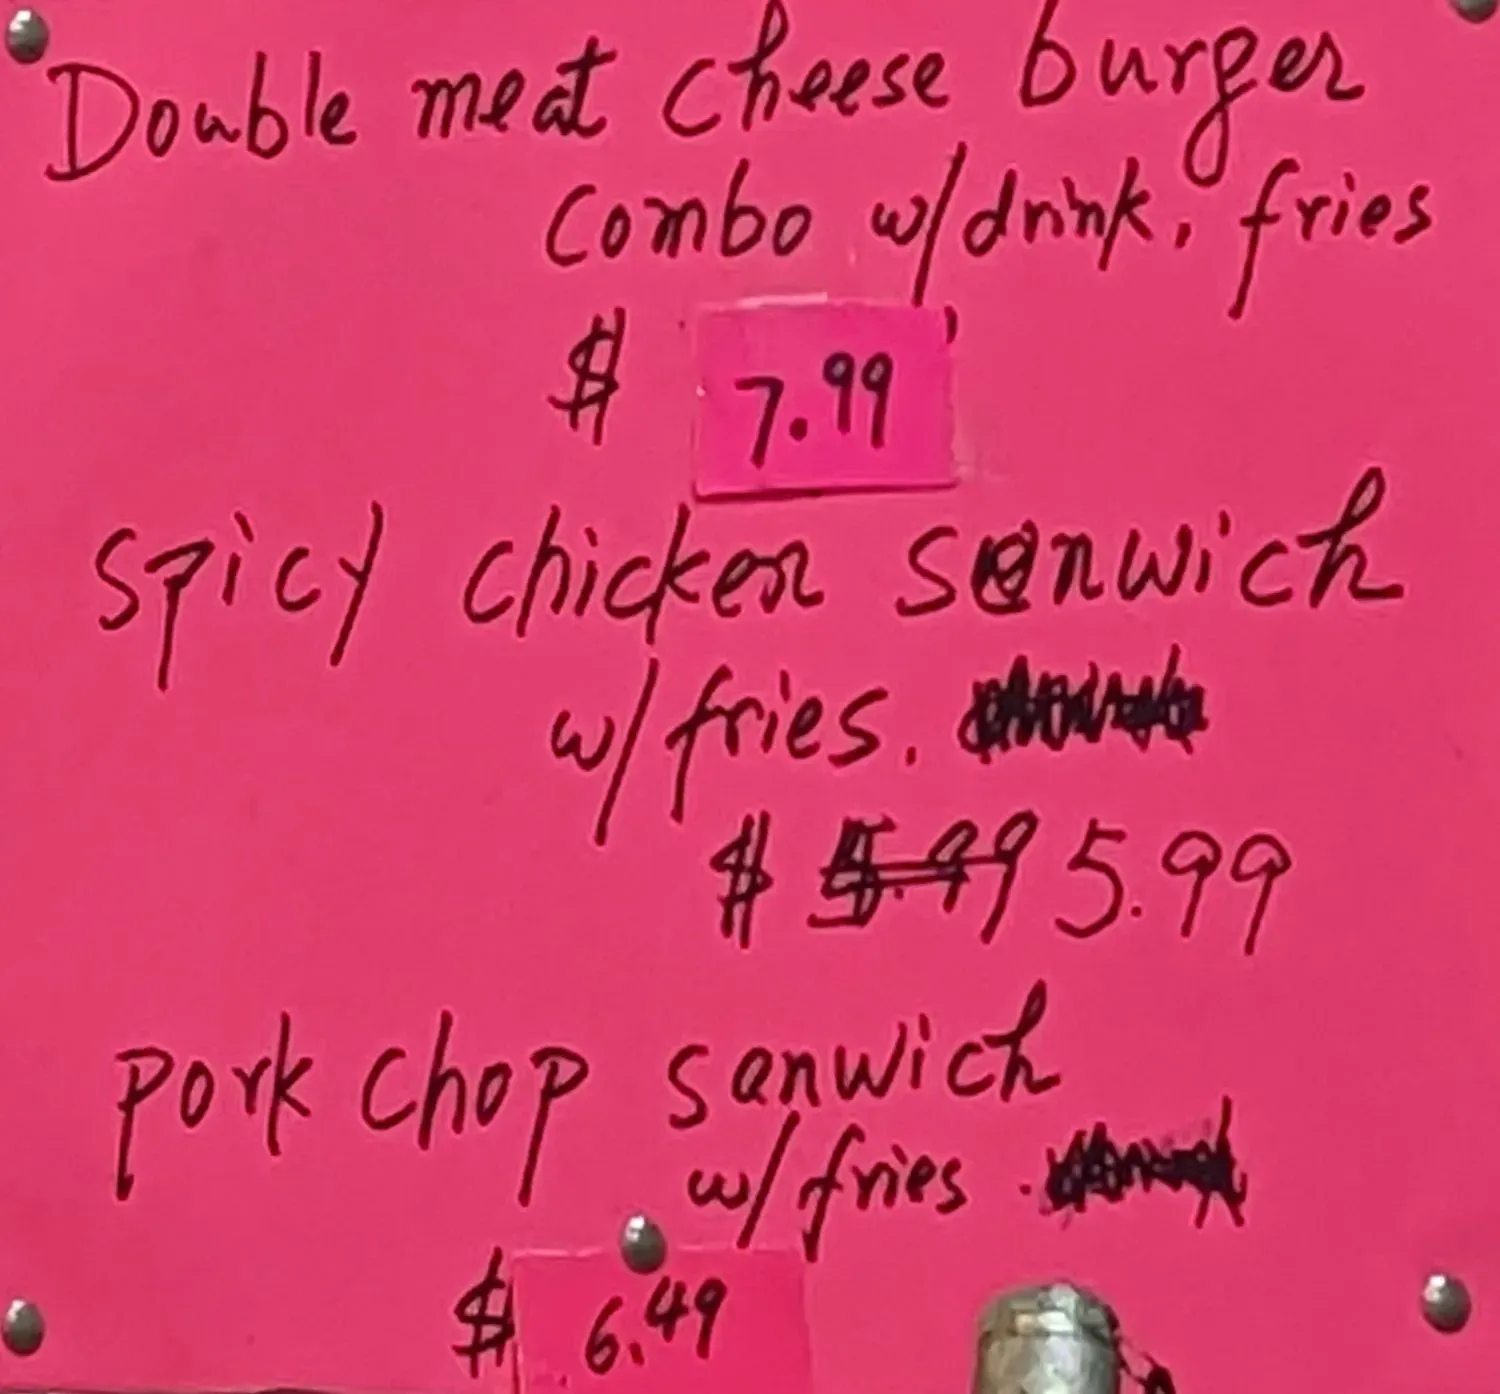 Double meat cheese burger
combo w/drink, fries
$ 7.99
spicy chicken sanwich
w/fries.
$ 5.99
pork chop sanwich
w/fries.
$ 6.49